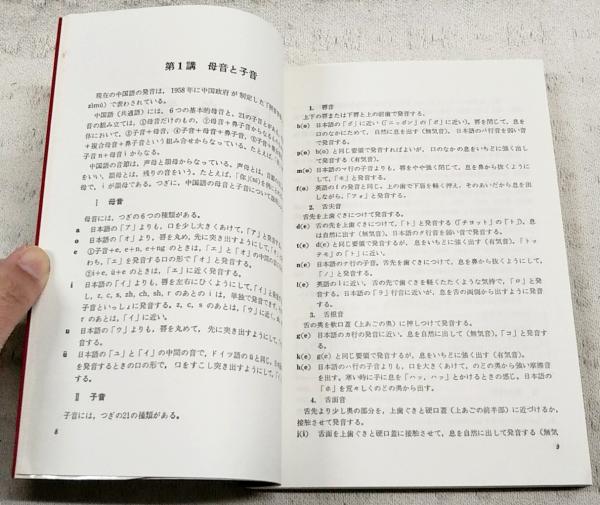 第1講　母音と子音
現在の中国語の発音は，1958年に中国政府が制定した「
zìmǔ）で表わされている。
中国語（共通語）には，6つの基本的母音と，21の子音と
音の組み立ては，①母音だけのもの，②母音＋鼻子音からなる
体において，③子音＋母音，④子音＋母音＋鼻子音，
＋複合母音＋鼻子音という組み合せからなっている。たとえば，
子音n＋母音i）からなる。
中国語の音節は，声母と韻母からなっている。声母とは，
をいい，韻母とは，残りの音をいう。たとえば，「你」（nǐ）を例に
母で，iが韻母である。つぎに，中国語の母音と子音について説明
Ⅰ　母音
母音には，つぎの6つの種類がある。
a　日本語の「ア」よりも，口を少し大きくあけて，「ア」と発音する
o　日本語の「オ」より，唇を丸め，先に突き出すようにして，「オ
e　①子音＋e，e＋n，e＋ngのときは，「エ」と「オ」の中間の音
わち，「エ」を発音する口の形で「オ」と発音する。
②i＋e，ü＋eのときは，「エ」に近く発音する。
i　日本語の「イ」よりも，唇を左右にひくようにして，「イ」と発音
し，z，c，s，zh，ch，sh，rのあとのiは，単独で発音できず，
子音といっしょに発音する。z，c，sのあとは，「ウ」に近く，
のあとは，「イ」に近い。
u　日本語の「ウ」よりも，唇を丸めて，先に突き出すようにして，
音する。
ü　日本語の「ユ」と「イ」の中間の音で，ドイツ語のüと同じ。
を発音するときの口の形で，口をすこし突き出すようにして，
る。
Ⅱ　子音
子音には，つぎの21の種類がある。
8
1.　唇音
上下の唇または下唇と上の前歯で発音する。
b(o)　日本語の「ポ」に近い（「ニッポン」の「ポ」に近い）。唇を閉じて，息を
口のなかにためて，自然に息を出す（無気音）。日本語のパ行音を弱い音
で発音する。
p(o)　b(o)と同じ要領で発音すればよいが，口のなかの息をいちどに強く出し
て発音する（有気音）。
m(o)　日本語のマ行の子音よりも，唇をやや強く閉じて，息を鼻から抜くように
して，「モ」と発音する。
f(o)　英語のfの発音と同じ。上の歯で下唇を軽く押え，そのあいだから息を出
しながら，「フォ」と発音する。
2.　舌尖音
舌先を上歯ぐきにつけて発音する。
d(e)　舌の先を上歯ぐきにつけて，「ト」と発音する（「チヨット」の「ト」）。息
は自然に出す（無気音）。日本語のタ行音を弱い音で発音する。
t(e)　d(e)と同じ要領で発音するが，息をいちどに強く出す（有気音）。「トッ
テモ」の「ト」に近い。
n(e)　日本語のナ行の子音で，舌先を上歯ぐきにつけて，息を鼻から抜くようにして，
「ノ」と発音する。
l(e)　英語のlに近い，舌の先で歯ぐきを軽くたたくような気持で，「ロ」と発
音する。日本語の「ラ」行音に近いが，息を舌の両側から出すように発音
する。
3.　舌根音
舌の奥を軟口蓋（上あごの奥）に押しつけて発音する。
g(e)　日本語のカ行の発音に近い。息を自然に出して（無気音），「コ」と発音す
る。
k(e)　g(e)と同じ要領で発音するが，息をいちどに強く出す（有気音）。
h(e)　日本語のハ行の子音よりも，口を大きくあけて，のどの奥から強い摩擦音
を出す。寒い時に手に息を「ハッ，ハッ」とかけるときの感じ。日本語の
「ホ」を荒々しくのどの奥から出すように発音する。
4.　舌面音
舌先より少し奥の部分を，上歯ぐきと硬口蓋（上あごの前半部）に近づけるか，
接触させて発音する。
j(i)　舌面を上歯ぐきと硬口蓋に接触させて，息を自然に出して発音する（無気
9